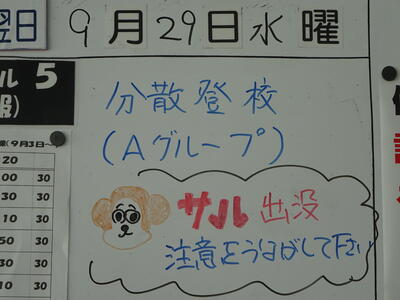 翌日 9月29日水曜
ル 5
報)
分散登校
(Aグループ)
(9月3日~
20
00 30
30 30
10 30
50 30
30
10 30
サル出没
注意をうながして下さい